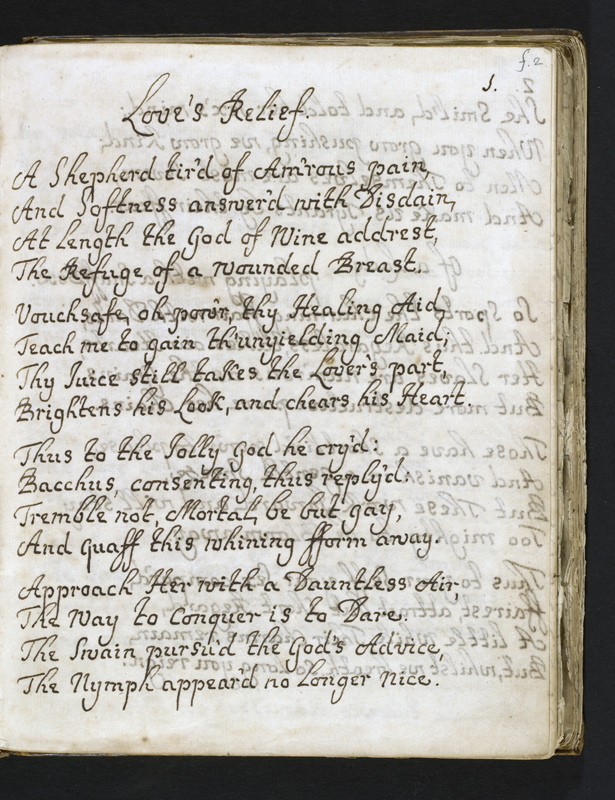 f. 2
1.
Love's Relief.
A Shepherd tir'd of Am'rous pain,
And Softness answer'd with Disdain,
At length the God of Wine addrest,
The Refuge of a wounded Breast.
Vouchsafe, oh pow'r, thy Healing Aid,
Teach me to gain th'unyielding Maid;
Thy Juice still takes the Lover's part,
Brightens his Look, and chears his Heart.
Thus to the Jolly God he cry'd:
Bacchus, consenting, thus reply'd:
Tremble not, Mortal, be but gay,
And quaff this whining fform away.
Approach Her with a Dauntless Air,
The Way to Conquer is to Dare.
The Swain pursu'd the God's Advice,
The Nymph appear'd no Longer Nice.